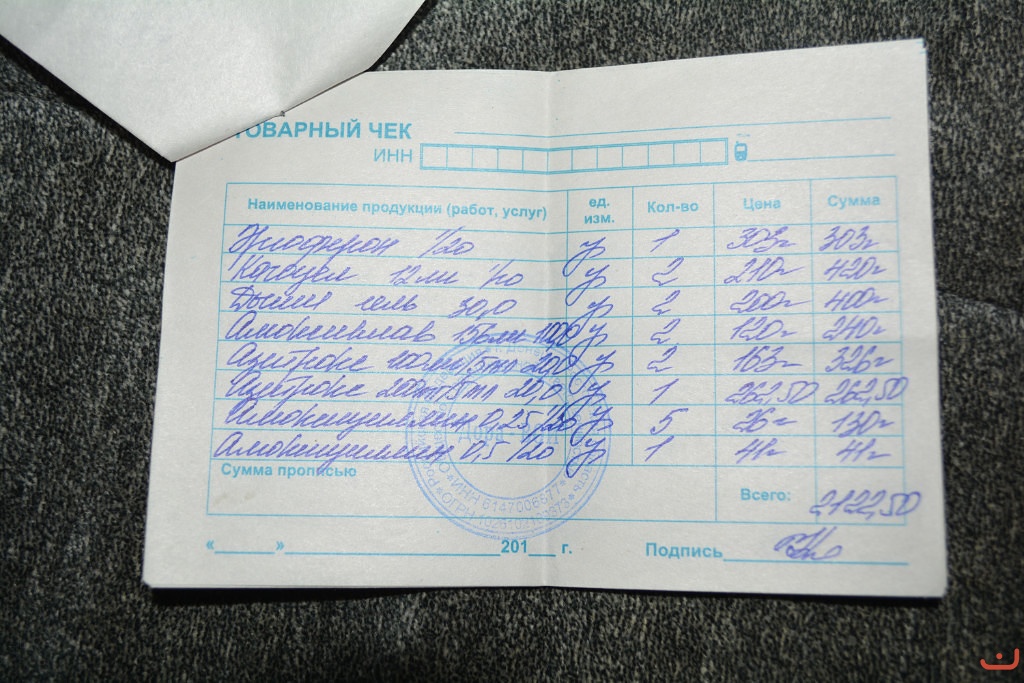 ТОВАРНЫЙ ЧЕК
ИНН
Наименование продукции (работ, услуг) ед. изм. Кол-во Цена Сумма
1/20 у 1 303= 303=
Кагоцел 12мг 1/10 у 2 210= 420=
соль 30,0 у 2 200= 400=
Амоксиклав 156мг 100,0 у 2 120= 240=
Азитрокс 100мг/5мл 20,0 у 2 163= 326=
Азитрокс 200мг/5мл 20,0 у 1 262,50 262,50
Амоксициллин 0,25 1/20 у 5 26= 130=
Амоксициллин 0,5 1/20 у 1 41= 41=
Сумма прописью
Всего: 2122,50
« » 201 г. Подпись
ИНН 6147006577